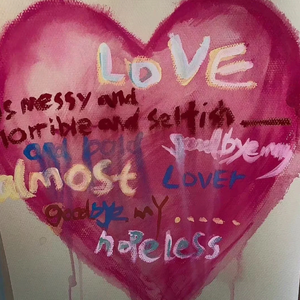 LOVE
is messy and
horrible and selfish —
and bold goodbye my
almost LOVER
goodbye my .....
hopeless